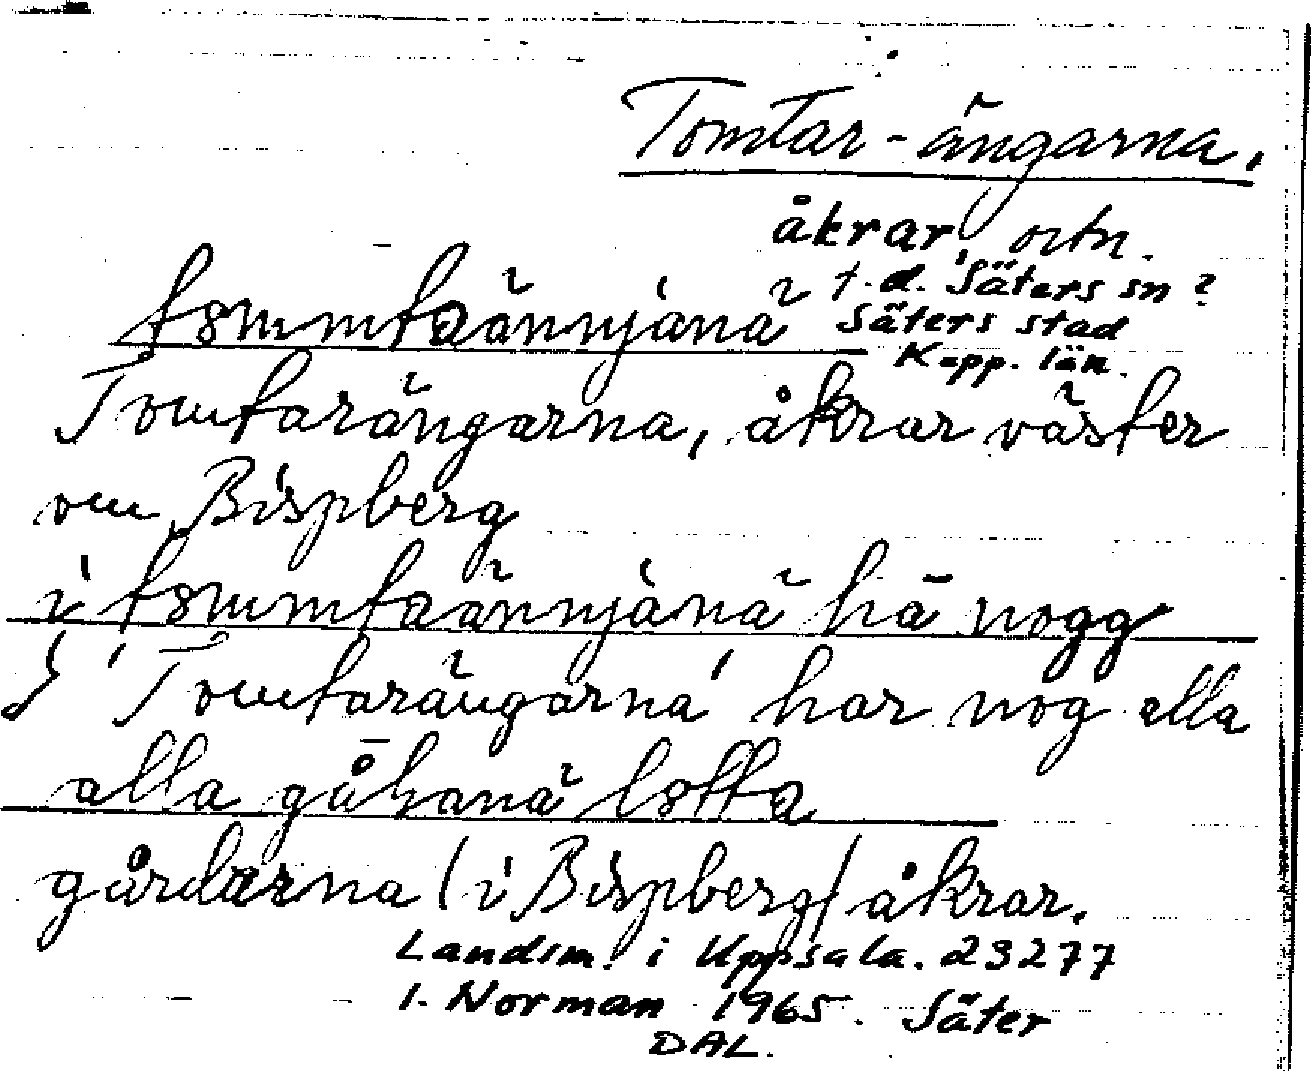 Tomtar-ängarna.
åkrar ortn.
t.d. Säters sn?
tommtaännjänä
Säters stad
Kopp. län.
Tomtarängarna, åkrar väster
om Bispberg
i tommtaännjänä hā nogg
I 'Tomtarängarna' har nog alla
alla gålanä lotta
gårdarna (i Bispberg) åkrar.
Landsm. i Uppsala. 23277
I. Norman 1965. Säter
DAL.